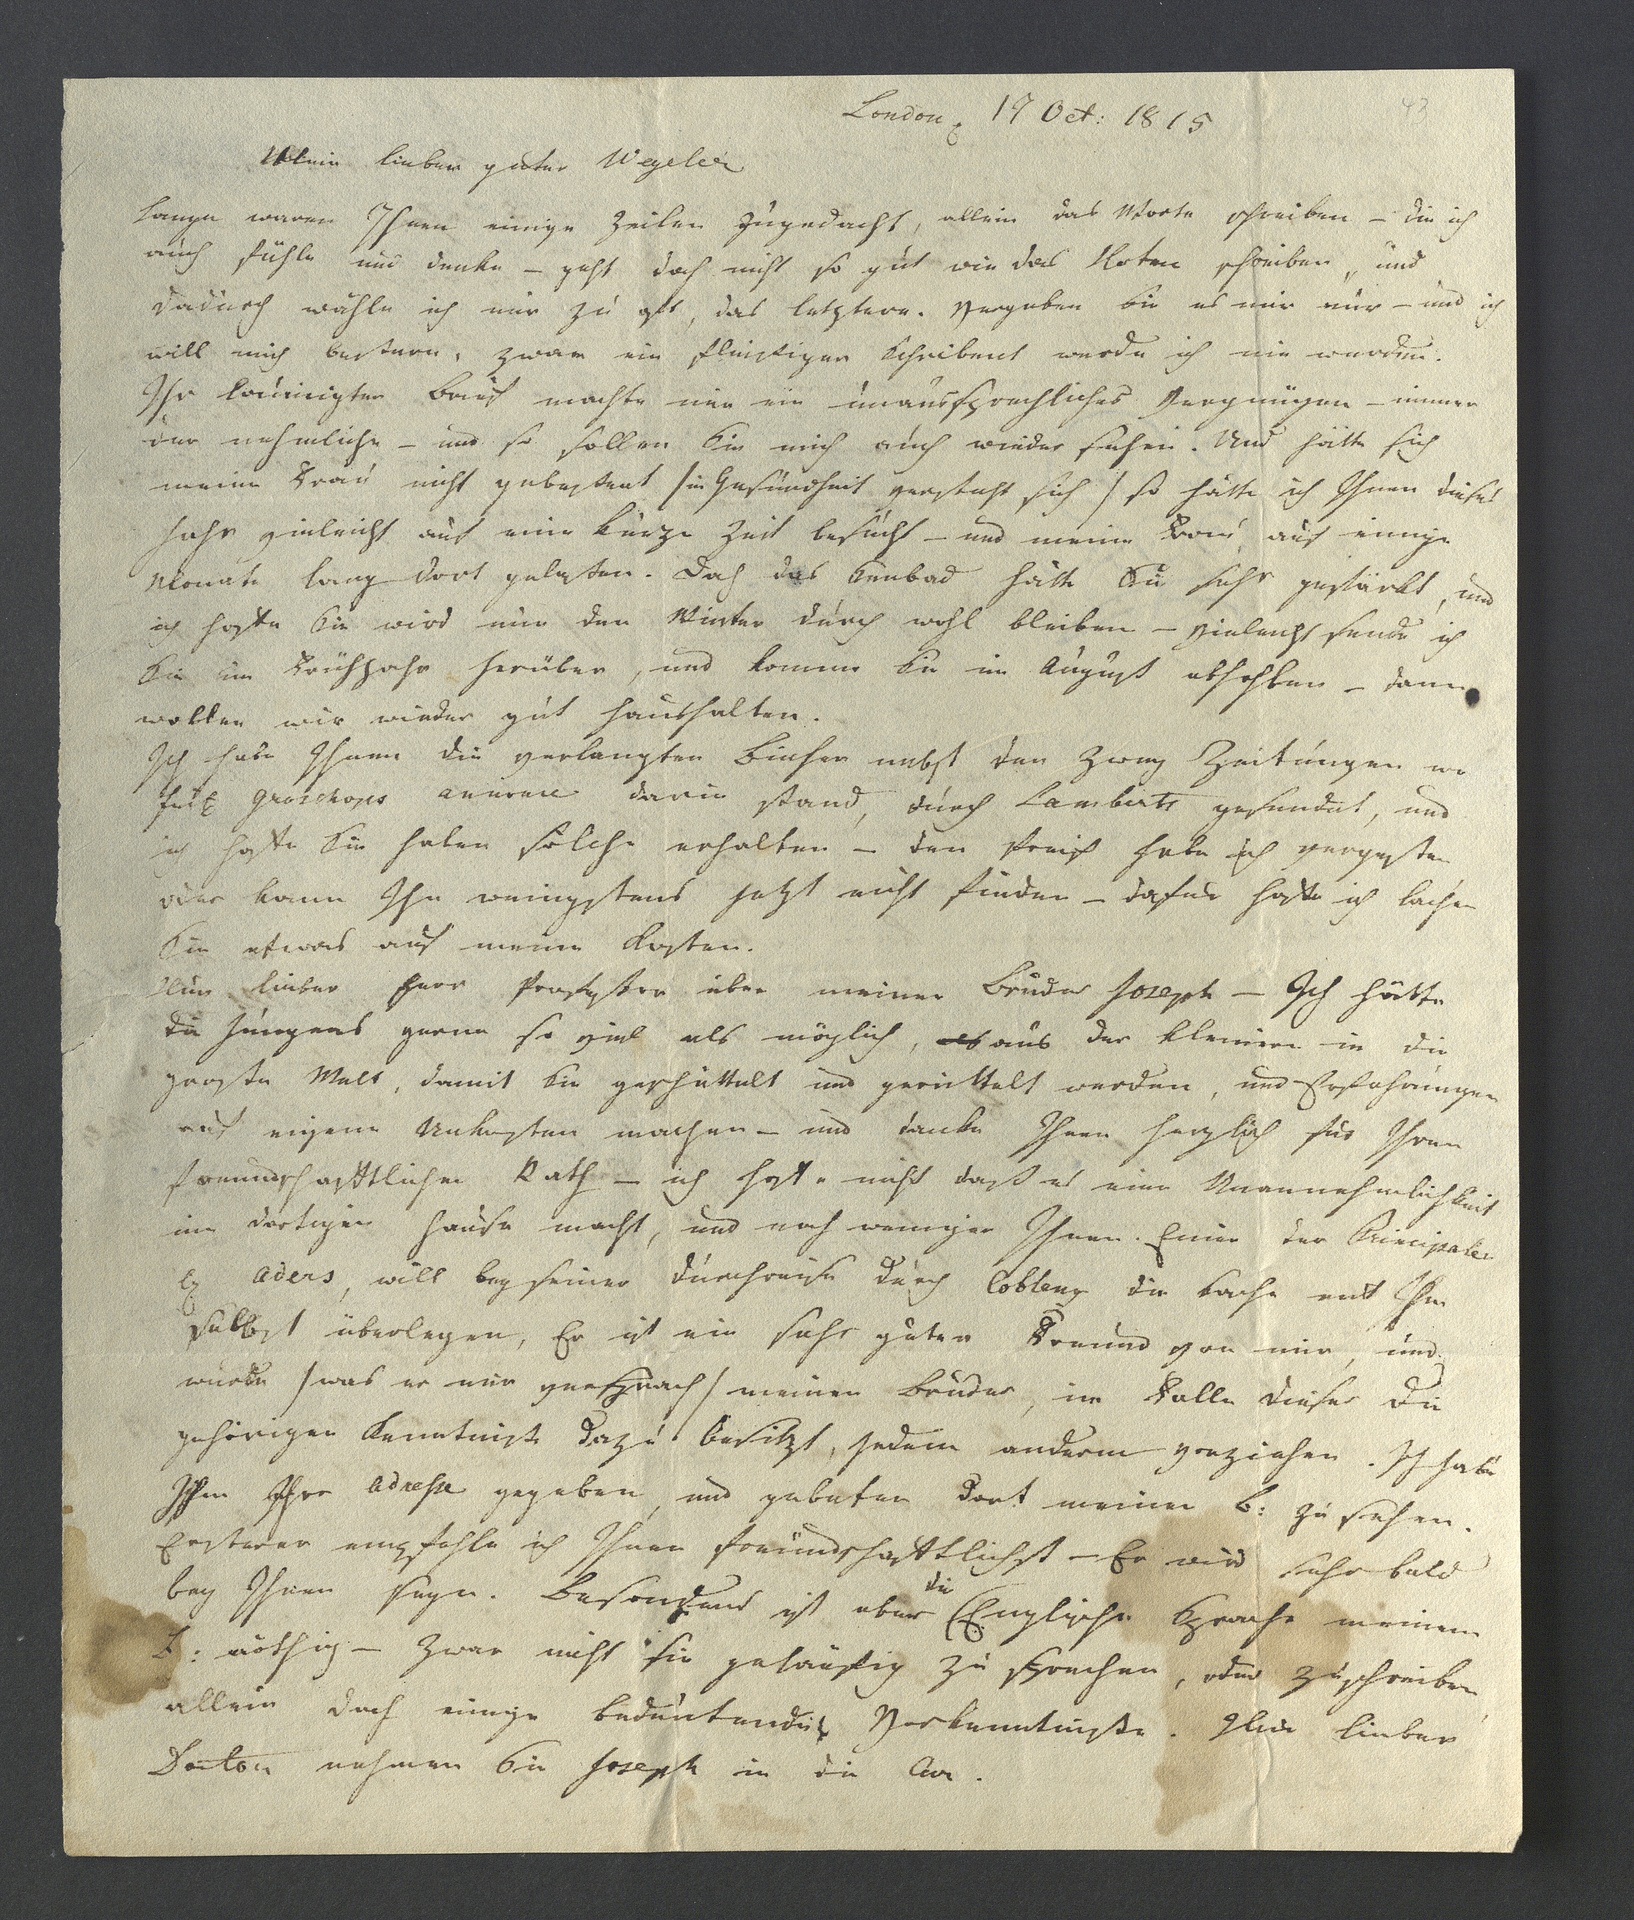 London, 17 Oct: 1815
Mein lieber guter Wegeler
Lange waren Ihnen einige Zeilen zugedacht, allein das Worte schreiben – die ich
auch fühle und denke – geht doch nicht so gut wie das Noten schreiben, und
dadurch wähle ich nur zu oft, das letztere. Vergeben Sie es mir nur – und ich
will mich bessern, zwar ein fleissiger Schreibent werde ich nie werden.
Ihr launigter Brief machte mir ein unaussprechliches Vergnügen – immer
der nehmliche – und so sollen Sie mich auch wieder sehen. Und hätte sich
meine Frau nicht gebessert /in Gesundheit versteht sich/ so hätte ich Ihnen dieses
Jahr vieleicht auf eine kurze Zeit besucht – und meine Frau auf einige
Monate lang dort gelassen. Doch das Seebad hatte Sie sehr gestärkt, und
ich hoffe Sie wird mir den Winter durch wohl bleiben – vieleicht sende ich
Sie im Frühjahr herüber, und komme Sie im August abhohlen – dann
wollen wir wieder gut haushalten.
Ich habe Ihnen die verlangten Bücher nebst den zwey Zeitungen wo
Groschops darin stand, durch Lamberts gesendet, und
ich hoffe Sie haben solche erhalten – den Preiß habe ich vergessen
oder kann Ihn wenigstens jetzt nicht finden – dafür hoffe ich lachen
Sie etwas auf meine Kosten.
Nun lieber Herr Professor über meinen Bruder Joseph – Ich hätte
die Jungens gerne so viel als möglich, aus der kleinen in die
große Welt, damit Sie geschüttelt und gerüttelt werden, und Erfahrungen
auf eigene Unkosten machen – und danke Ihnen herzlich für Ihren
freundschaftlichen Rath – ich hoffe nicht daß es eine Unannehmlichkeit
im dortigen Hause macht, und noch weniger Ihnen. Einer der Principalen
Aders, will bey seiner Durchreise durch Coblenz die Sache mit Ihnen
selbst überlegen, Er ist ein sehr guter Freund von mir, und
würde /was er mir versprach/ meinen Bruder, im Falle dieser die
gehörigen Kenntnisse dazu besitzt, jedem andern vorziehen. Ich habe
Ihm Ihre adresse gegeben, und gebeten dort meinen B: zu sehen.
Ersteren empfehle ich Ihnen freundschaftlichst – Er wird sehr bald
bey Ihnen seyn. Besonders ist aber die Englische Sprache meinem
B: nöthig – zwar nicht sie geläufig zu sprechen, oder zu schreiben
allein doch einige bedeutende Vorkenntnisse. Nun lieber
Doctor nehmen Sie Joseph in die Cur.